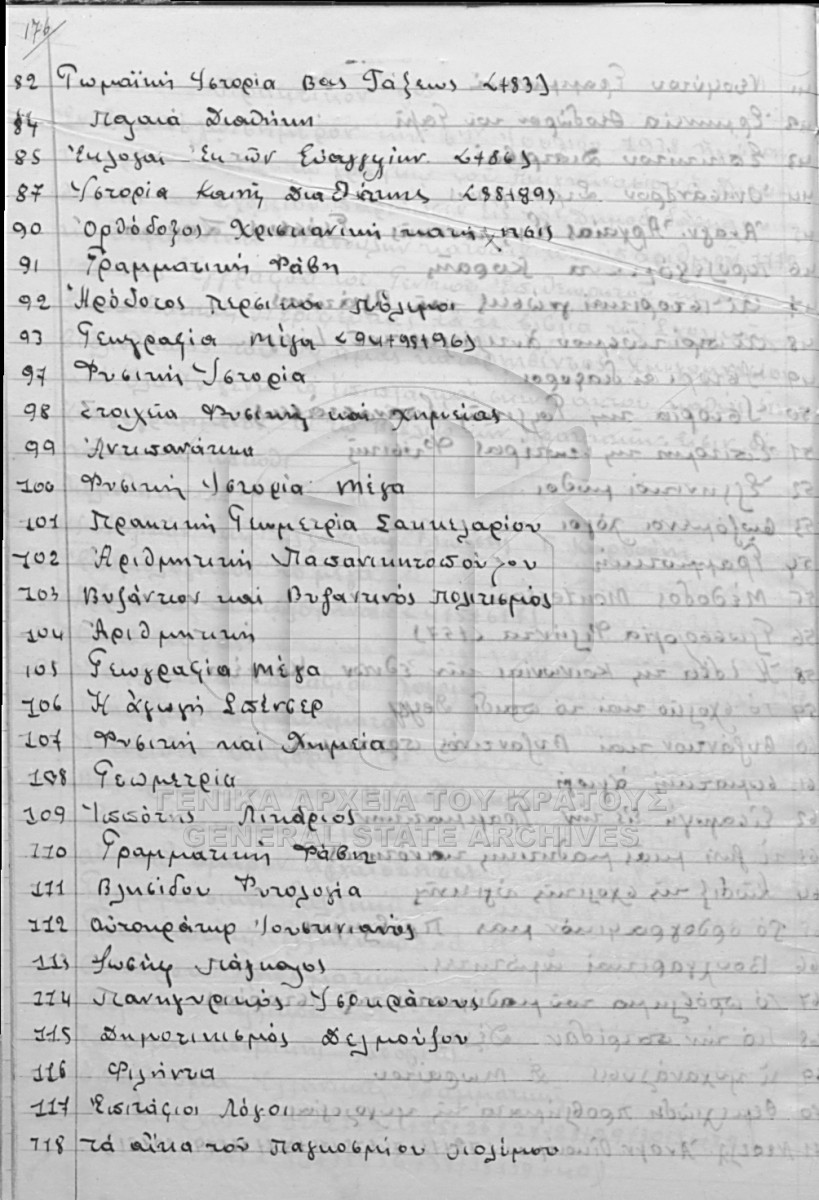 176
82 Ρωμαϊκή Ἱστορία βας Τάξεως <+83>
84 Παλαιά Διαθήκη
85 Ἐκλογαί Ἐκ τῶν Εὐαγγελίων <+86>
87 Ἱστορία Καινῆ Διαθήκης <88+89>
90 Ὀρθόδοξος Χριστιανική κατήχησις
91 Γραμματική Φάβη
92 Ἡρόδοτος περσικοί πόλεμοι
93 Γεωγραφία Μέγα <94+95+96>
97 Φυσική Ἱστορία
98 Στοιχεῖα Φυσικῆς καί Χημείας
99 Ἀντιπανάτικα
100 Φυσική Ἱστορία Μέγα
101 Πρακτική Γεωμετρία Σακκελαρίου
102 Ἀριθμητική Παπανικητοπούλου
103 Βυζάντιον καί Βυζαντινός πολιτισμός
104 Ἀριθμητική
105 Γεωγραφία Μέγα
106 Ἡ ἀγωγή Σπένσερ
107 Φυσική καί Χημεία
108 Γεωμετρία
109 Ἱππότης Λικάριος
110 Γραμματική Φάβη
111 Βλησίδου Φυτολογία
112 Αὐτοκράτωρ Ἰουστινιανός
113 Ἰωσήφ Πάγκαλος
114 Πανηγυρικός Ἰσοκράτους
115 Δημοτικισμός Δελμούζου
116 Φιλήντα
117 Ἐπιτάφιοι Λόγοι
118 τά αἴτια τοῦ Παγκοσμίου πολέμου
ΓΕΝΙΚΑ ΑΡΧΕΙΑ ΤΟΥ ΚΡΑΤΟΥΣ
GENERAL STATE ARCHIVES